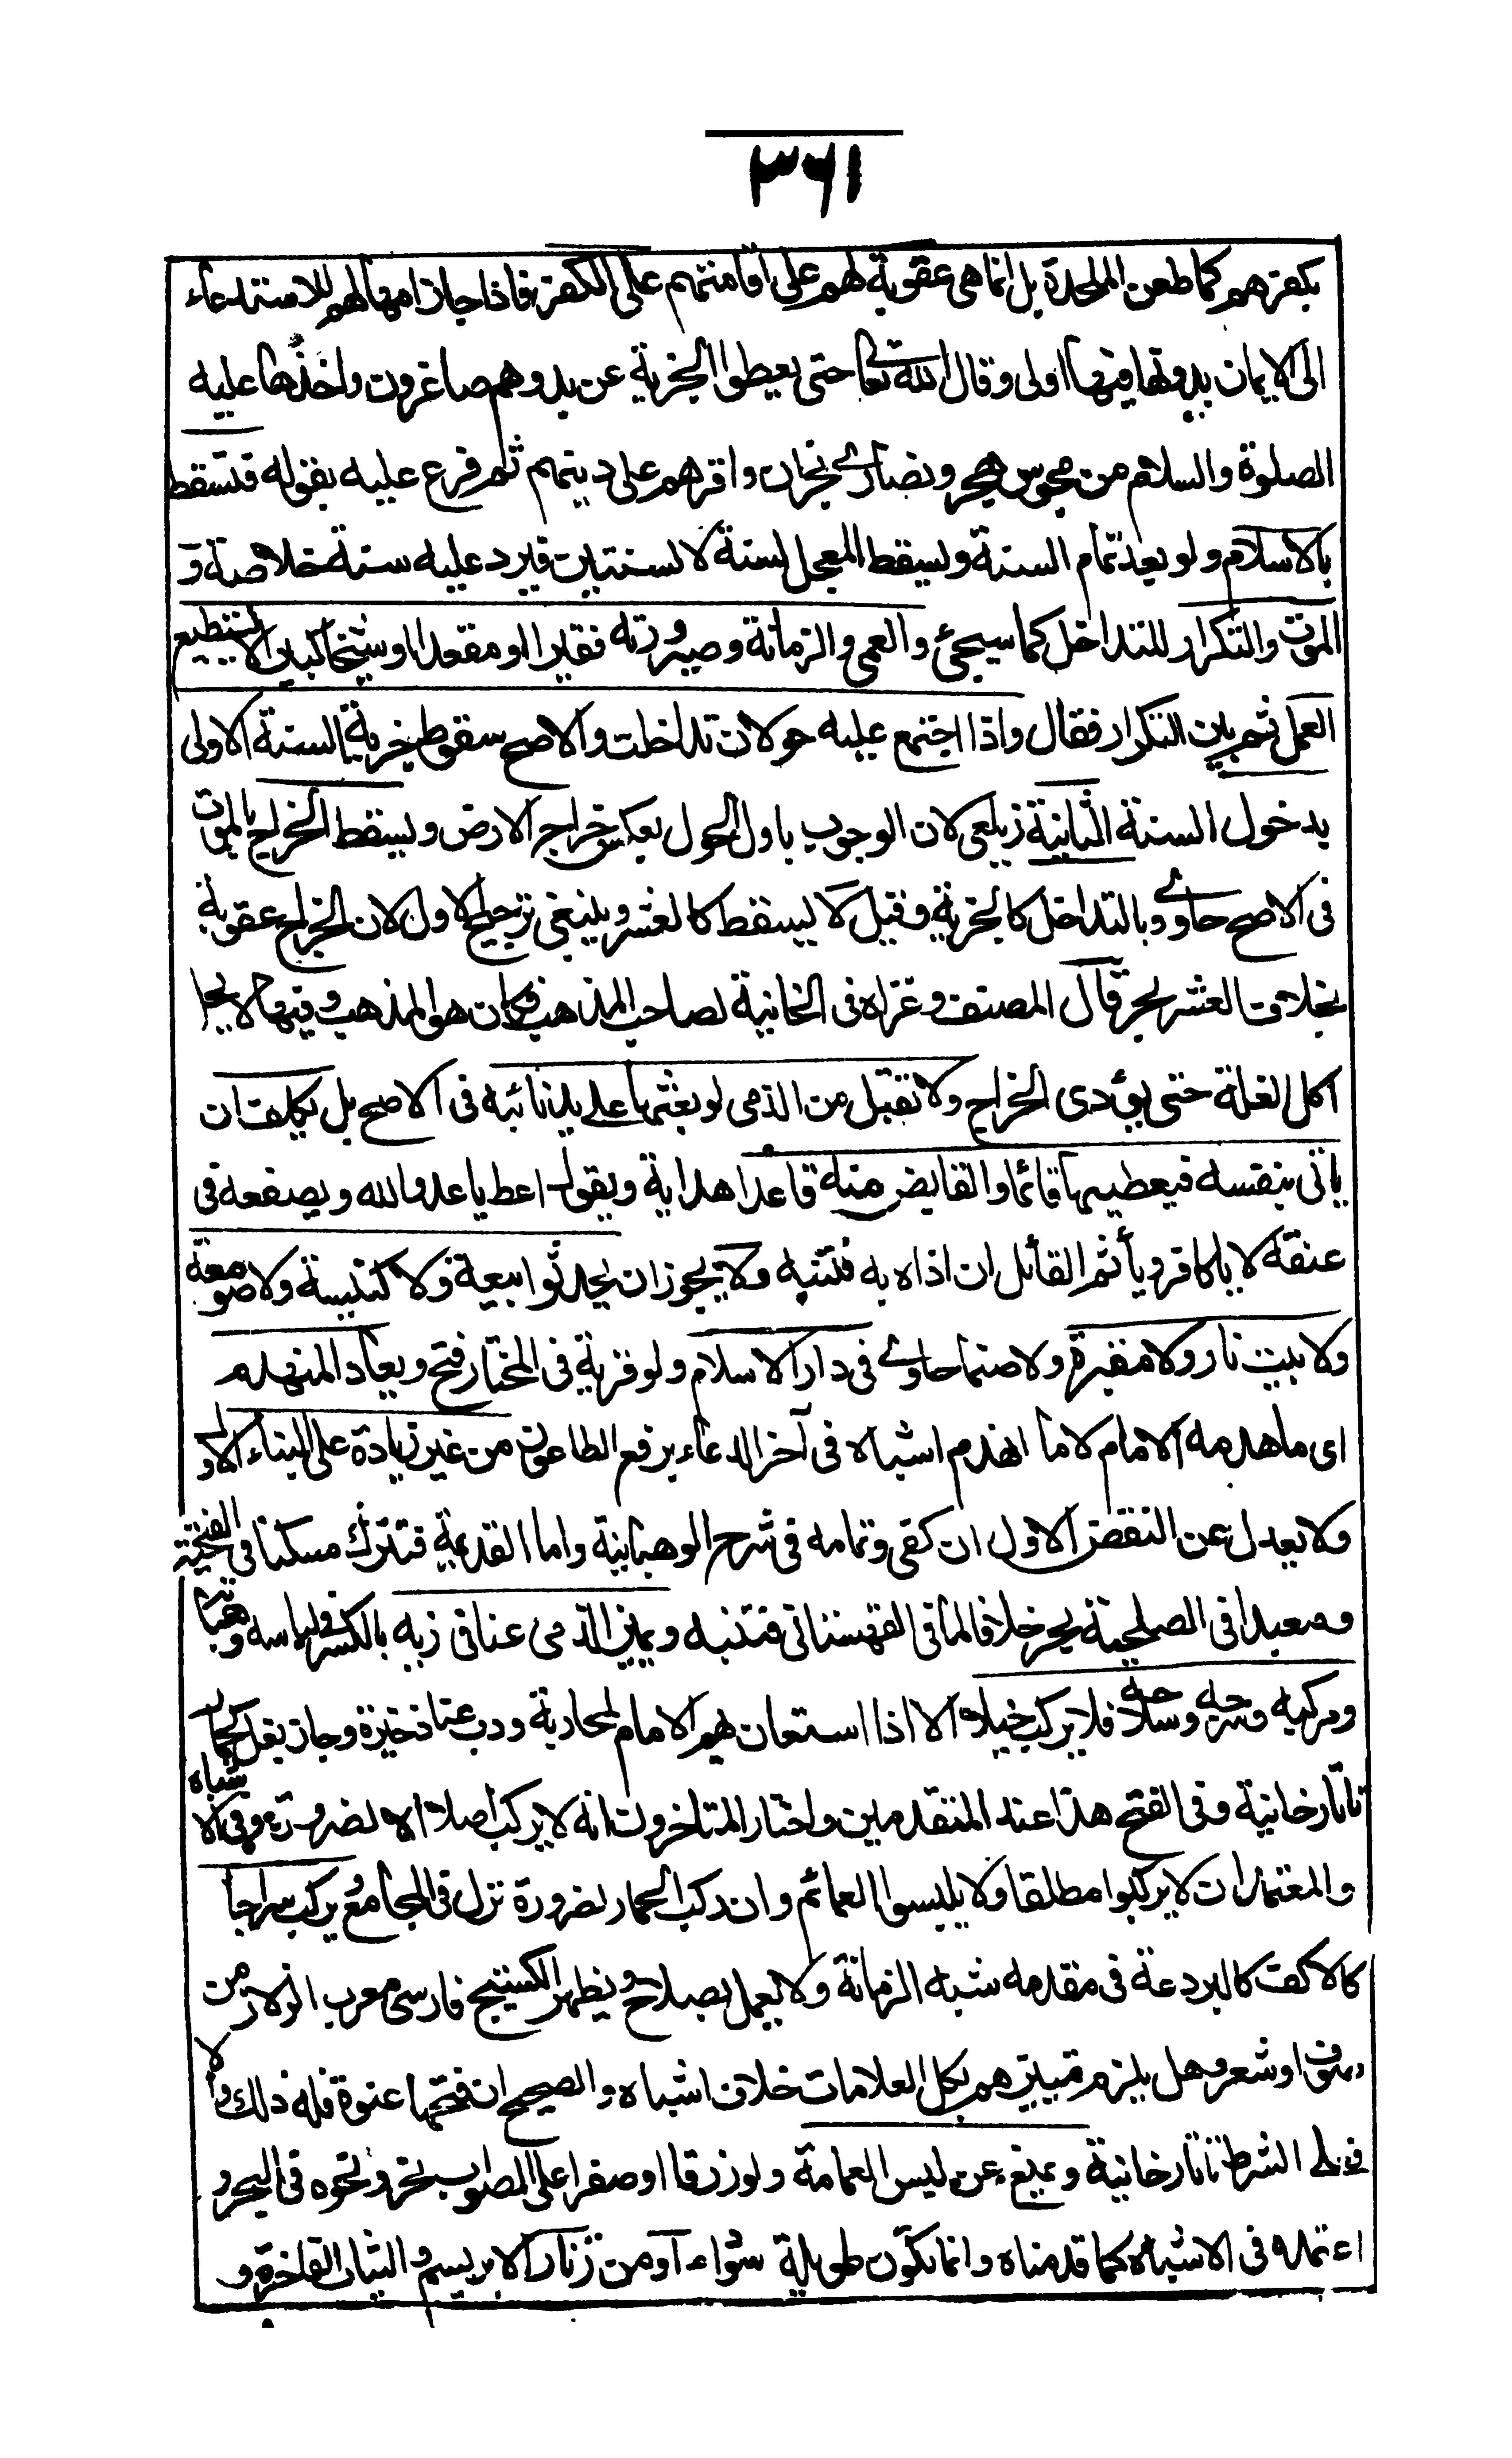 ٣٦١
بكفرهم كما طعن الملحدة بل انما هى عقوبة لهم على اقامتهم على الكفر فاذا جاز امهالهم للاستدعاء
الى الايمان بدونها فبها اولى وقال الله تعا حتى يعطوا الجزية عن يد وهم صاغرون واخذها عليه
الصلوة والسلام من مجوس هجر ونصارى نجران واقرهم على دينهم ثم فرع عليه بقوله فتسقط
بالاسلام ولو بعد تمام السنة ويسقط المعجل لسنة لا لسنتين فيرد عليه سنة خلاصة و
الموت والتكرار للتداخل كما سيجئ والعمى والزمانة وصيرورته فقيرا او مقعدا او شيخا كبيرا لا يستطيع
العمل ثم بين التكرار فقال واذا اجتمع عليه حولان تداخلت والاصح سقوط جزية السنة الاولى
بدخول السنة الثانية زيلعى لان الوجوب باول الحول بعكس خراج الارض ويسقط الخراج بالموت
فى الاصح حاوى وبالتداخل كالجزية وقيل لا يسقط كالعشر وينبغى ترجيح الاول لان الخراج عقوبة
بخلاف العشر بحر قال المصنف وعزاه فى الخانية لصاحب المذهب فكان هو المذهب وفيها لا يحل
اكل الغلة حتى يؤدى الخراج ولا تقبل من الذمى لو بعثها على يد نائبه فى الاصح بل يكلف ان
ياتى بنفسه فيعطيها قائما والقابض منه قاعدا هداية ويقول اعط يا عدو الله ويصفعه فى
عنقه لا يا كافر ويأثم القائل ان اذاه به قنيه ولا يجوز ان يحدثوا بيعة ولا كنيسة ولا صومعة
ولا بيت نار ولا مقبرة ولا صنما حاوى فى دار الاسلام ولو قرية فى المختار فتح ويعاد المنهدم
اى ما هدمه الامام لا ما انهدم اشباه فى آخر الدعاء برفع الطاعون من غير زيادة على البناء الاول
ولا يعدل عن النقض الاول ان كفى وتمامه فى شرح الوهبانية واما القديمة فتترك مسكنا فى الفتحية
ومعبدا فى الصلحية بحر خلافا لما فى القهستانى فتنبه ويميز الذمى عنا فى زيه بالكسر ولباسه وهيأته
ومركبه وسرجه وسلاحه فلا يركب خيلا الا اذا استعان بهم الامام لمحاربة وذب عنا ذخيرة وجاز بغل كحمار
تاتارخانية وفى الفتح هذا عند المتقدمين واختار المتاخرون انه لا يركب اصلا الا لضرورة وفى الاشباه
والمعتمد ان لا يركبوا مطلقا ولا يلبسوا العمائم وان ركب الحمار لضرورة نزل فى المجامع ويركب سراجا
كالاكف كالبردعة فى مقدمه شبه الرمانة ولا يعمل بصلاح ويظهر الكستيج فارسى معرب الزنار من
صوف او شعر وهل يلزم تمييزهم بكل العلامات خلاف اشباه والصحيح ان فتحها عنوة فله ذلك والا
فعلى الشرط تاتارخانية ويمنع عن لبس العمامة ولو زرقا او صفرا على الصواب نهر ونحوه فى البحر و
اعتمده فى الاشباه كما قدمناه وانما تكون طويلة سوداء و من زنار الابريسم والثياب الفاخرة و